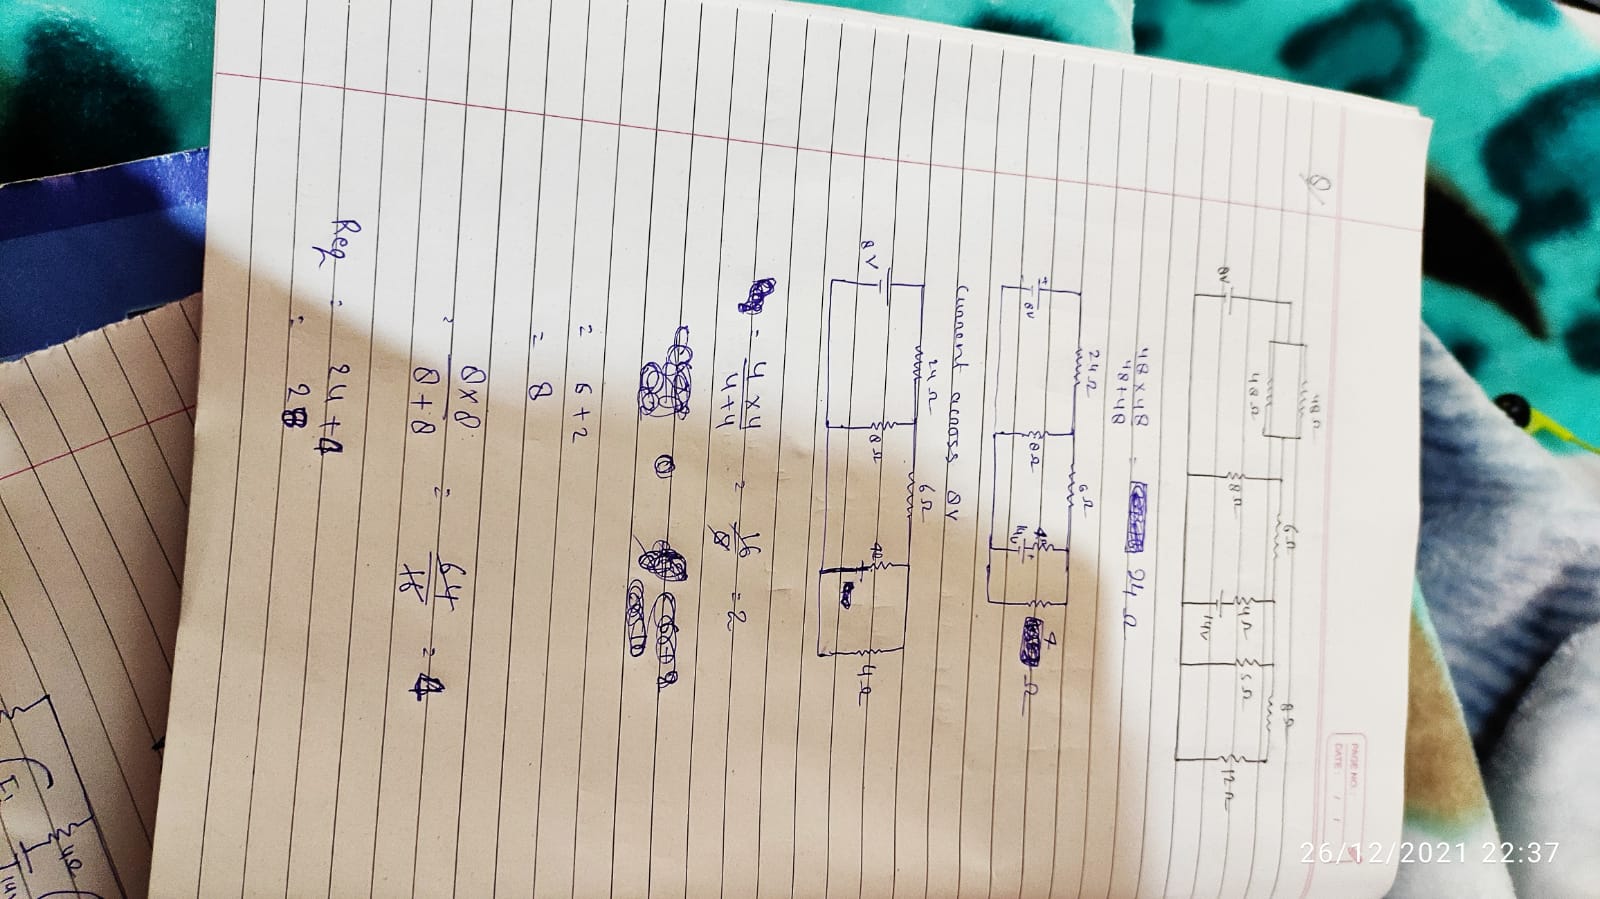 PAGE NO.:
DATE: / /
Q/
48Ω
48Ω
6Ω
8Ω
8V
8Ω
4Ω
14V
5Ω
12Ω
48 × 48 / 48 + 48 = 24Ω
24Ω
6Ω
+
8V
8Ω
4Ω
14V
+
4 Ω
Current across 8V
24Ω
6Ω
8V
8Ω
4Ω
4Ω
= 4 × 4 / 4 + 4 = 16 / 8 = 2
= 6 + 2
= 8
= 8 × 8 / 8 + 8 = 64 / 16 = 4
Req : 24 + 4
: 28
4Ω
14V
26/12/2021 22:37